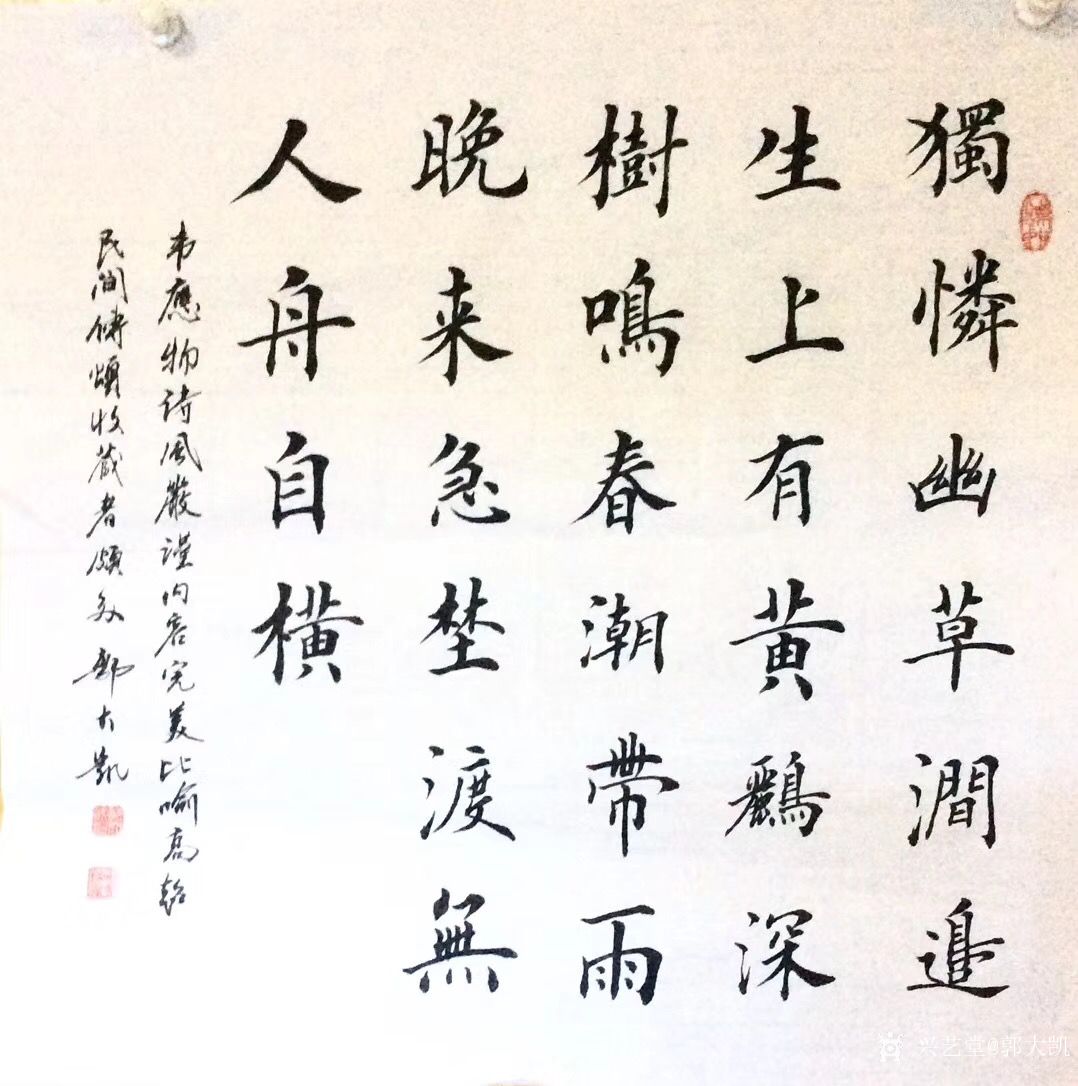 獨憐幽草澗邉
生上有黄鸝深
樹鳴春潮帶雨
晚来急埜渡無
人舟自横
韦應物诗风嚴謹内容完美比喻高超
民间傳頌收藏者頗多 郭大凱
兴艺堂@郭大凯